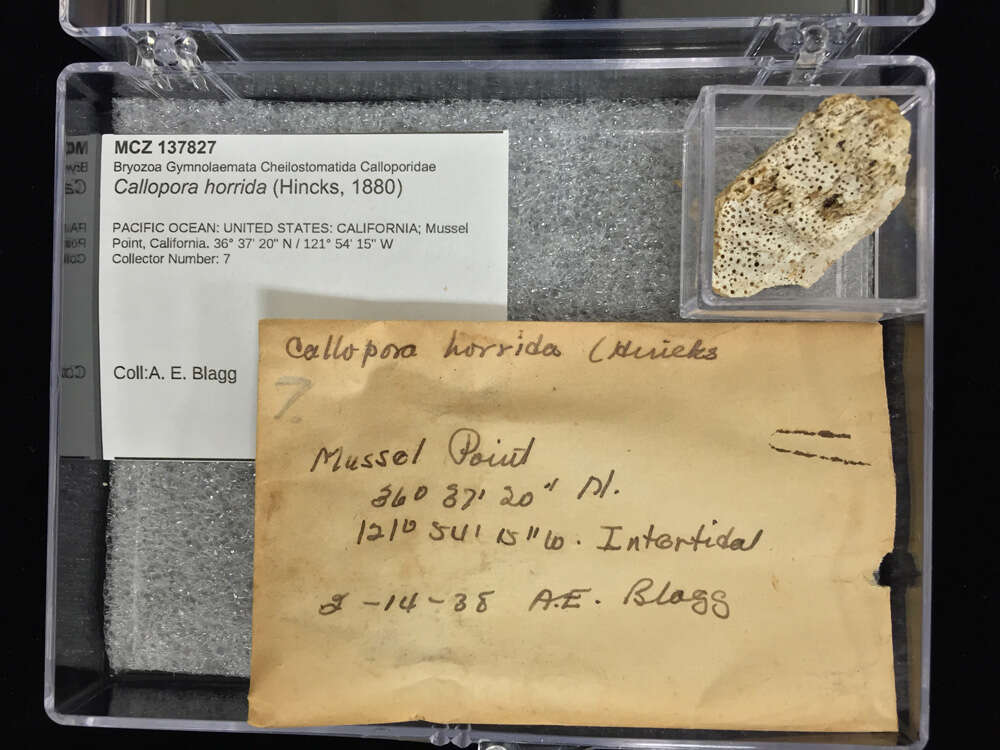 MCZ 137827
Bryozoa Gymnolaemata Cheilostomatida Calloporidae
Callopora horrida (Hincks, 1880)
PACIFIC OCEAN: UNITED STATES: CALIFORNIA; Mussel
Point, California. 36° 37' 20" N / 121° 54' 15" W
Collector Number: 7
Coll:A. E. Blagg
Callopora horrida (Hincks
7.
Mussel Point
36° 37' 20" N.
121° 54' 15" W. Intertidal
2-14-38 A.E. Blagg